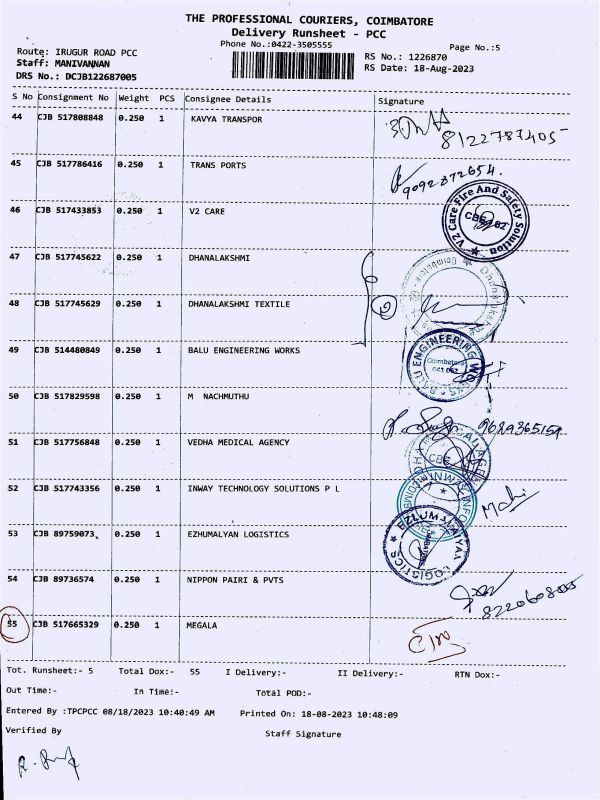 THE PROFESSIONAL COURIERS, COIMBATORE
Delivery Runsheet - PCC
Phone No.:0422-3505555
Page No.:5
Route: IRUGUR ROAD PCC
RS No.: 1226870
Staff: MANIVANNAN
RS Date: 18-Aug-2023
DRS No.: DCJB122687005
S No Consignment No Weight PCS Consignee Details Signature
44 CJB 517808848 0.250 1 KAVYA TRANSPOR
8122787405
45 CJB 517786416 0.250 1 TRANS PORTS
9092872654.
46 CJB 517433853 0.250 1 V2 CARE
V2 Care Fire And Safety Solution
47 CJB 517745622 0.250 1 DHANALAKSHMI
48 CJB 517745629 0.250 1 DHANALAKSHMI TEXTILE
49 CJB 514480849 0.250 1 BALU ENGINEERING WORKS
BALU ENGINEERING WORKS
Coimbatore
641 062
50 CJB 517829598 0.250 1 M NACHMUTHU
9689365159
51 CJB 517756848 0.250 1 VEDHA MEDICAL AGENCY
CBE
52 CJB 517743356 0.250 1 INWAY TECHNOLOGY SOLUTIONS P L
Mahi
53 CJB 89759073 0.250 1 EZHUMALYAN LOGISTICS
EZLUMALAIYAL LOGISTICS
54 CJB 89736574 0.250 1 NIPPON PAIRI & PVTS
55 CJB 517665329 0.250 1 MEGALA
Tot. Runsheet:- 5 Total Dox:- 55 I Delivery:- II Delivery:- RTN Dox:-
Out Time:- In Time:- Total POD:-
Entered By :TPCPCC 08/18/2023 10:40:49 AM Printed On: 18-08-2023 10:48:09
Verified By Staff Signature